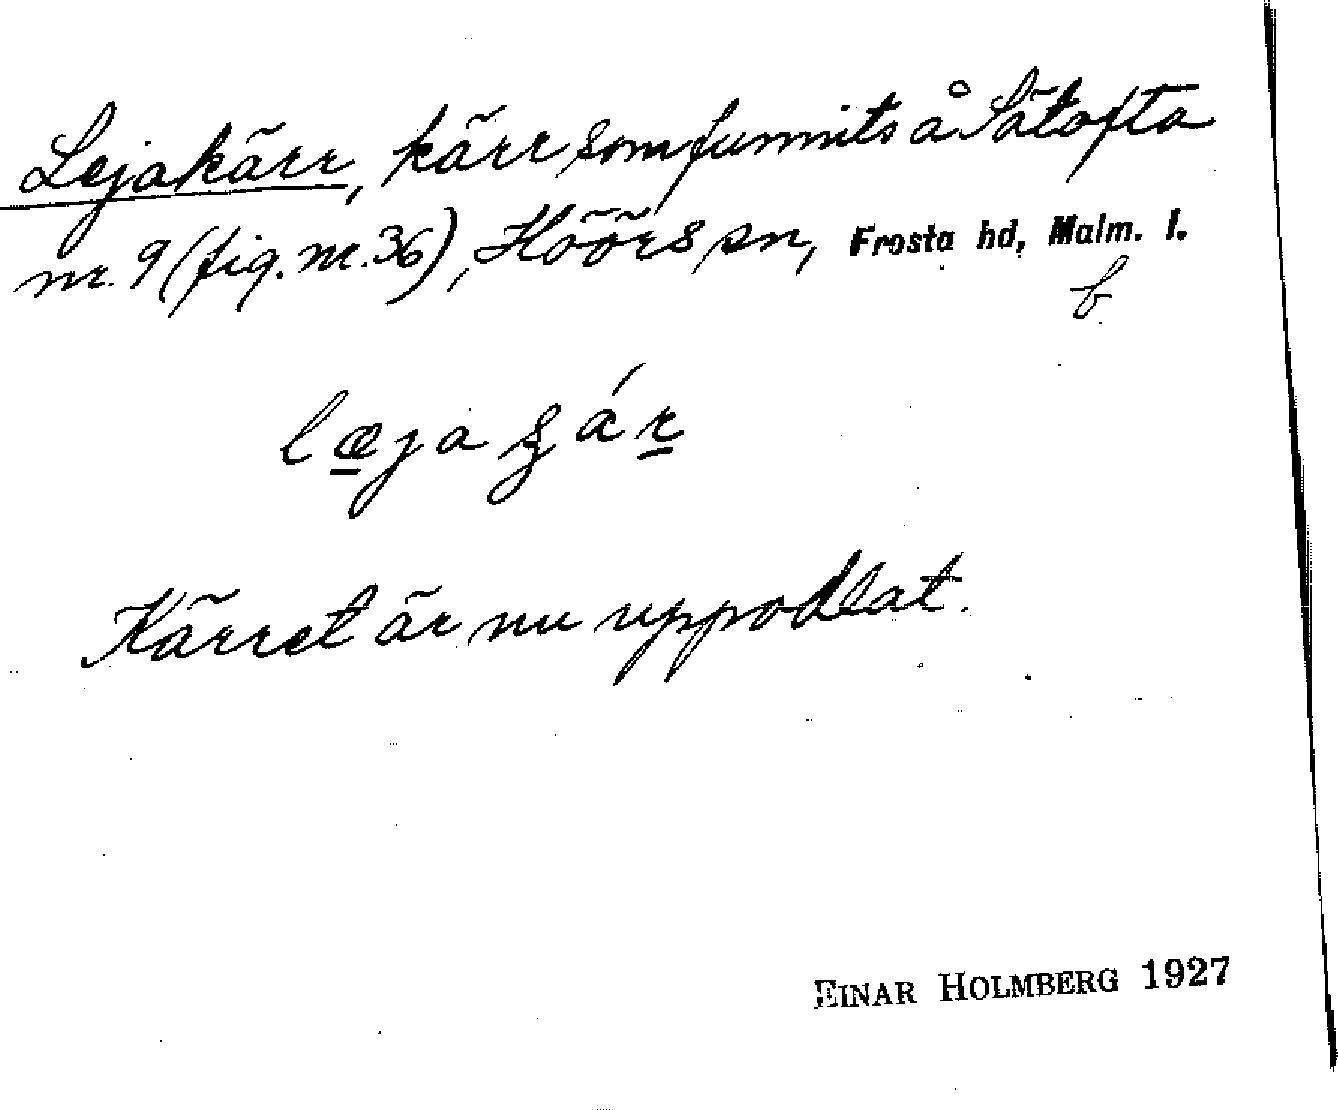 Lejakärr, kärr som funnits å Sätofta
nr. 9 (fig. nr. 36), Höörs sn, Frosta hd, Malm. l.
b
Kärret är nu uppodlat.
EINAR HOLMBERG 1927